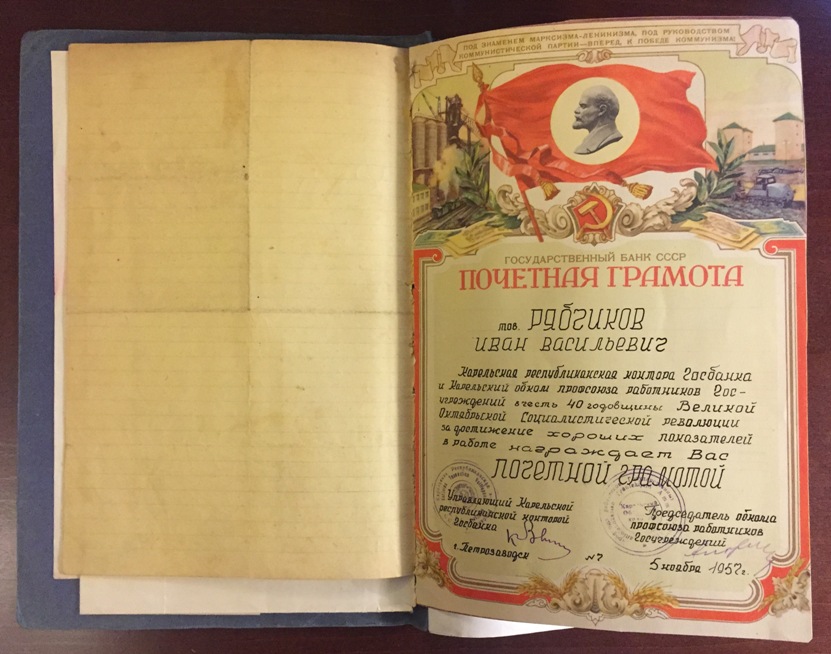 ПОД ЗНАМЕНЕМ МАРКСИЗМА-ЛЕНИНИЗМА, ПОД РУКОВОДСТВОМ
КОММУНИСТИЧЕСКОЙ ПАРТИИ—ВПЕРЕД, К ПОБЕДЕ КОММУНИЗМА!
ГОСУДАРСТВЕННЫЙ БАНК СССР
ПОЧЕТНАЯ ГРАМОТА
тов. РЯБЧИКОВ
ИВАН ВАСИЛЬЕВИЧ
Карельская республиканская контора Госбанка
и Карельский обком профсоюза работников Гос-
учреждений в честь 40 годовщины Великой
Октябрьской Социалистической революции
за достижение хороших показателей
в работе награждает Вас
ПОЧЕТНОЙ ГРАМОТОЙ
Управляющий Карельской
республиканской конторой
Госбанка
Председатель обкома
профсоюза работников
Госучреждений
г. Петрозаводск
№7
5 ноября 1957г.